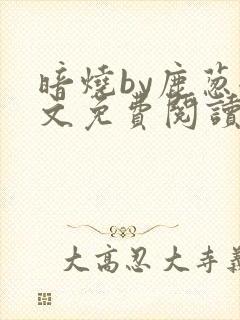 暗燒by鹿葱
文免費閱讀
大高忍大寺